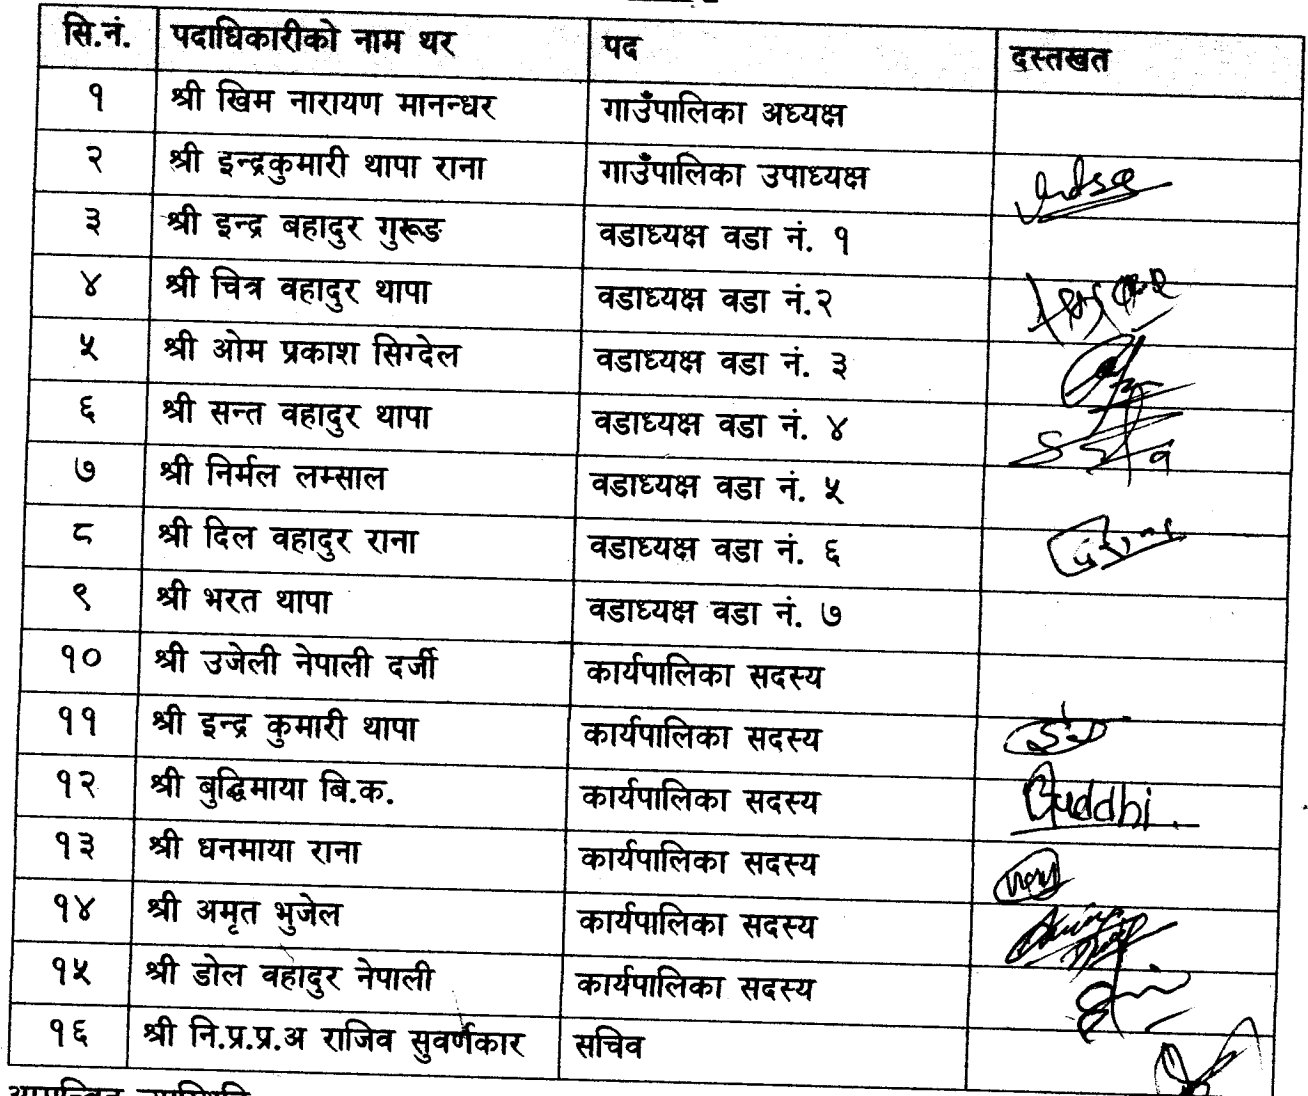 सि.नं. पदाधिकारीको नाम थर पद दस्तखत
१ श्री खिम नारायण मानन्धर गाउँपालिका अध्यक्ष
२ श्री इन्द्रकुमारी थापा राना गाउँपालिका उपाध्यक्ष
३ श्री इन्द्र बहादुर गुरूङ वडाध्यक्ष वडा नं. १
४ श्री चित्र वहादुर थापा वडाध्यक्ष वडा नं.२
५ श्री ओम प्रकाश सिग्देल वडाध्यक्ष वडा नं. ३
६ श्री सन्त वहादुर थापा वडाध्यक्ष वडा नं. ४
७ श्री निर्मल लम्साल वडाध्यक्ष वडा नं. ५
८ श्री दिल वहादुर राना वडाध्यक्ष वडा नं. ६
९ श्री भरत थापा वडाध्यक्ष वडा नं. ७
१० श्री उजेली नेपाली दर्जी कार्यपालिका सदस्य
११ श्री इन्द्र कुमारी थापा कार्यपालिका सदस्य
१२ श्री बुद्धिमाया बि.क. कार्यपालिका सदस्य Buddhi
१३ श्री धनमाया राना कार्यपालिका सदस्य
१४ श्री अमृत भुजेल कार्यपालिका सदस्य
१५ श्री डोल वहादुर नेपाली कार्यपालिका सदस्य
१६ श्री नि.प्र.प्र.अ राजिव सुवर्णकार सचिव